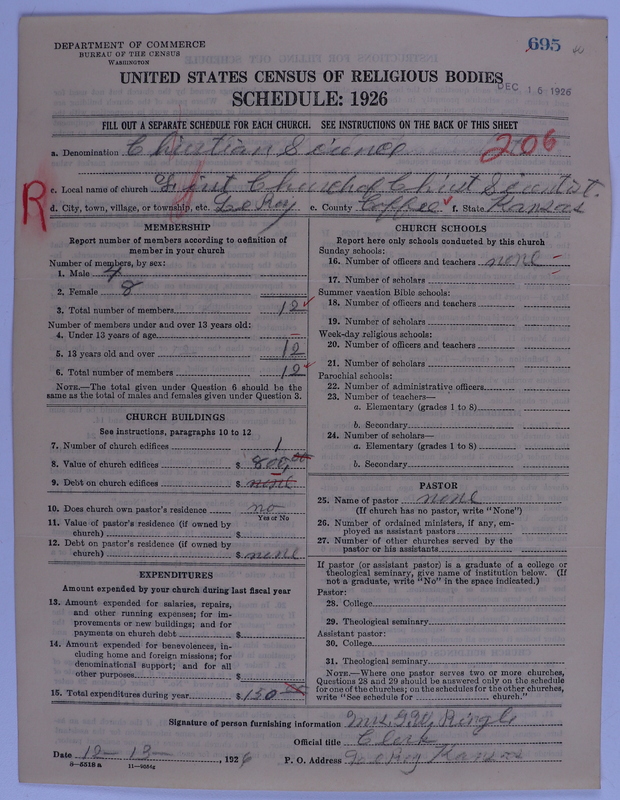 DEPARTMENT OF COMMERCE
BUREAU OF THE CENSUS
WASHINGTON
695
UNITED STATES CENSUS OF RELIGIOUS BODIES
DEC 16 1926
SCHEDULE: 1926
FILL OUT A SEPARATE SCHEDULE FOR EACH CHURCH. SEE INSTRUCTIONS ON THE BACK OF THIS SHEET
a. Denomination Christian Science 206
R
c. Local name of church First Church of Christ Scientist.
d. City, town, village, or township, etc. Le Roy e. County Coffee f. State Kansas
MEMBERSHIP
Report number of members according to definition of
member in your church
Number of members, by sex:
1. Male 4
2. Female 8
3. Total number of members 12
Number of members under and over 13 years old:
4. Under 13 years of age –
5. 13 years old and over 12
6. Total number of members 12
NOTE.—The total given under Question 6 should be the
same as the total of males and females given under Question 3.
CHURCH BUILDINGS
See instructions, paragraphs 10 to 12
7. Number of church edifices 1
8. Value of church edifices $ 800,00
9. Debt on church edifices $ none
10. Does church own pastor's residence no
Yes or No
11. Value of pastor's residence (if owned by
church) $
12. Debt on pastor's residence (if owned by
church) $ none
EXPENDITURES
Amount expended by your church during last fiscal year
13. Amount expended for salaries, repairs,
and other running expenses; for im-
provements or new buildings; and for
payments on church debt $
14. Amount expended for benevolences, in-
cluding home and foreign missions; for
denominational support; and for all
other purposes $
15. Total expenditures during year $ 150
CHURCH SCHOOLS
Report here only schools conducted by this church
Sunday schools:
16. Number of officers and teachers none –
17. Number of scholars –
Summer vacation Bible schools:
18. Number of officers and teachers
19. Number of scholars
Week-day religious schools:
20. Number of officers and teachers
21. Number of scholars
Parochial schools:
22. Number of administrative officers
23. Number of teachers—
a. Elementary (grades 1 to 8)
b. Secondary
24. Number of scholars—
a. Elementary (grades 1 to 8)
b. Secondary
PASTOR
25. Name of pastor none
(If church has no pastor, write "None")
26. Number of ordained ministers, if any, em-
ployed as assistant pastors
27. Number of other churches served by the
pastor or his assistants
If pastor (or assistant pastor) is a graduate of a college or
theological seminary, give name of institution below. (If
not a graduate, write "No" in the space indicated.)
Pastor:
28. College
29. Theological seminary
Assistant pastor:
30. College
31. Theological seminary
NOTE.—Where one pastor serves two or more churches,
Questions 28 and 29 should be answered only on the schedule
for one of the churches; on the schedules for the other churches,
write "See schedule for church."
Signature of person furnishing information Mrs Ringle
Official title Clerk
Date 12-13-, 1926 P. O. Address Le Roy Kansas
8—5518 a 11—9664g